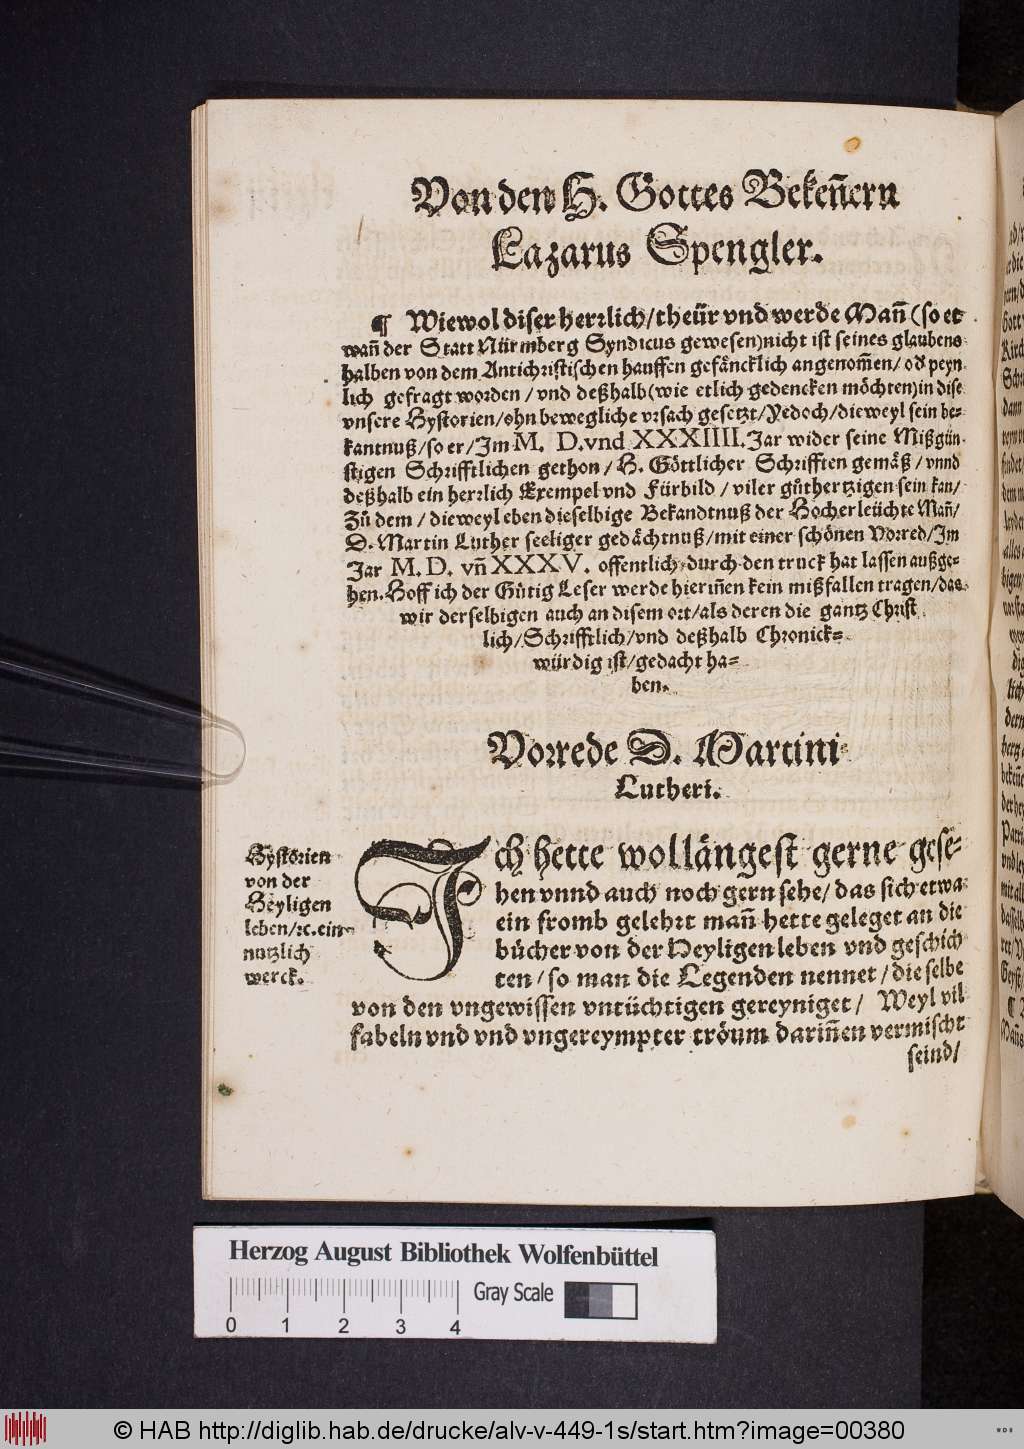 Von den H. Gottes Bekeñern
Lazarus Spengler.
¶ Wiewol diser herrlich/theür vnd werde Mañ (so et
wañ der Statt Nürmberg Syndicus gewesen) nicht ist seines glaubens
halben von dem Antichristischen hauffen gefäncklich angenom̃en/ od peyn
lich gefragt worden/ vnd deßhalb (wie etlich gedencken möchten) in dise
vnsere Hystorien/ohn bewegliche vrsach gesetzt/Yedoch/dieweyl sein be-
kantnuß/so er/Im M. D. vnd XXXIIII. Jar wider seine Mißgün-
stigen Schrifftlichen gethon/ H. Göttlicher Schrifften gemäß/ vnnd
deßhalb ein herrlich Exempel vnd Fürbild/ viler gůthertzigen sein kan/
Zů dem/ dieweyl eben dieselbige Bekandtnuß der Hocherleüchte Mañ/
D. Martin Luther seeliger gedächtnuß/mit einer schönen Vorred/Im
Jar M. D. vñ XXXV. offentlich durch den truck hat lassen außge-
hen. Hoff ich der Gůtig Leser werde hieriñen kein mißfallen tragen/das
wir derselbigen auch an disem ort/als deren die gantz Christ
lich/Schrifftlich/vnd deßhalb Chronick-
würdig ist/gedacht ha-
ben.
Vorrede D. Martini
Lutheri.
Hystorien
von der
Heyligen
leben/ꝛc. ein
nutzlich
werck.
Ich hette wollängest gerne gese-
hen vnnd auch noch gern sehe/ das sich etwa
ein fromb gelehrt mañ hette geleget an die
bücher von der Heyligen leben vnd geschich
ten/ so man die Legenden nennet/ die selbe
von den vngewissen vntüchtigen gereyniget/ Weyl vil
fabeln vnd vnd vngereympter tröum dariñen vermischt
seind/
Herzog August Bibliothek Wolfenbüttel
Gray Scale
0 1 2 3 4
© HAB http://diglib.hab.de/drucke/alv-v-449-1s/start.htm?image=00380